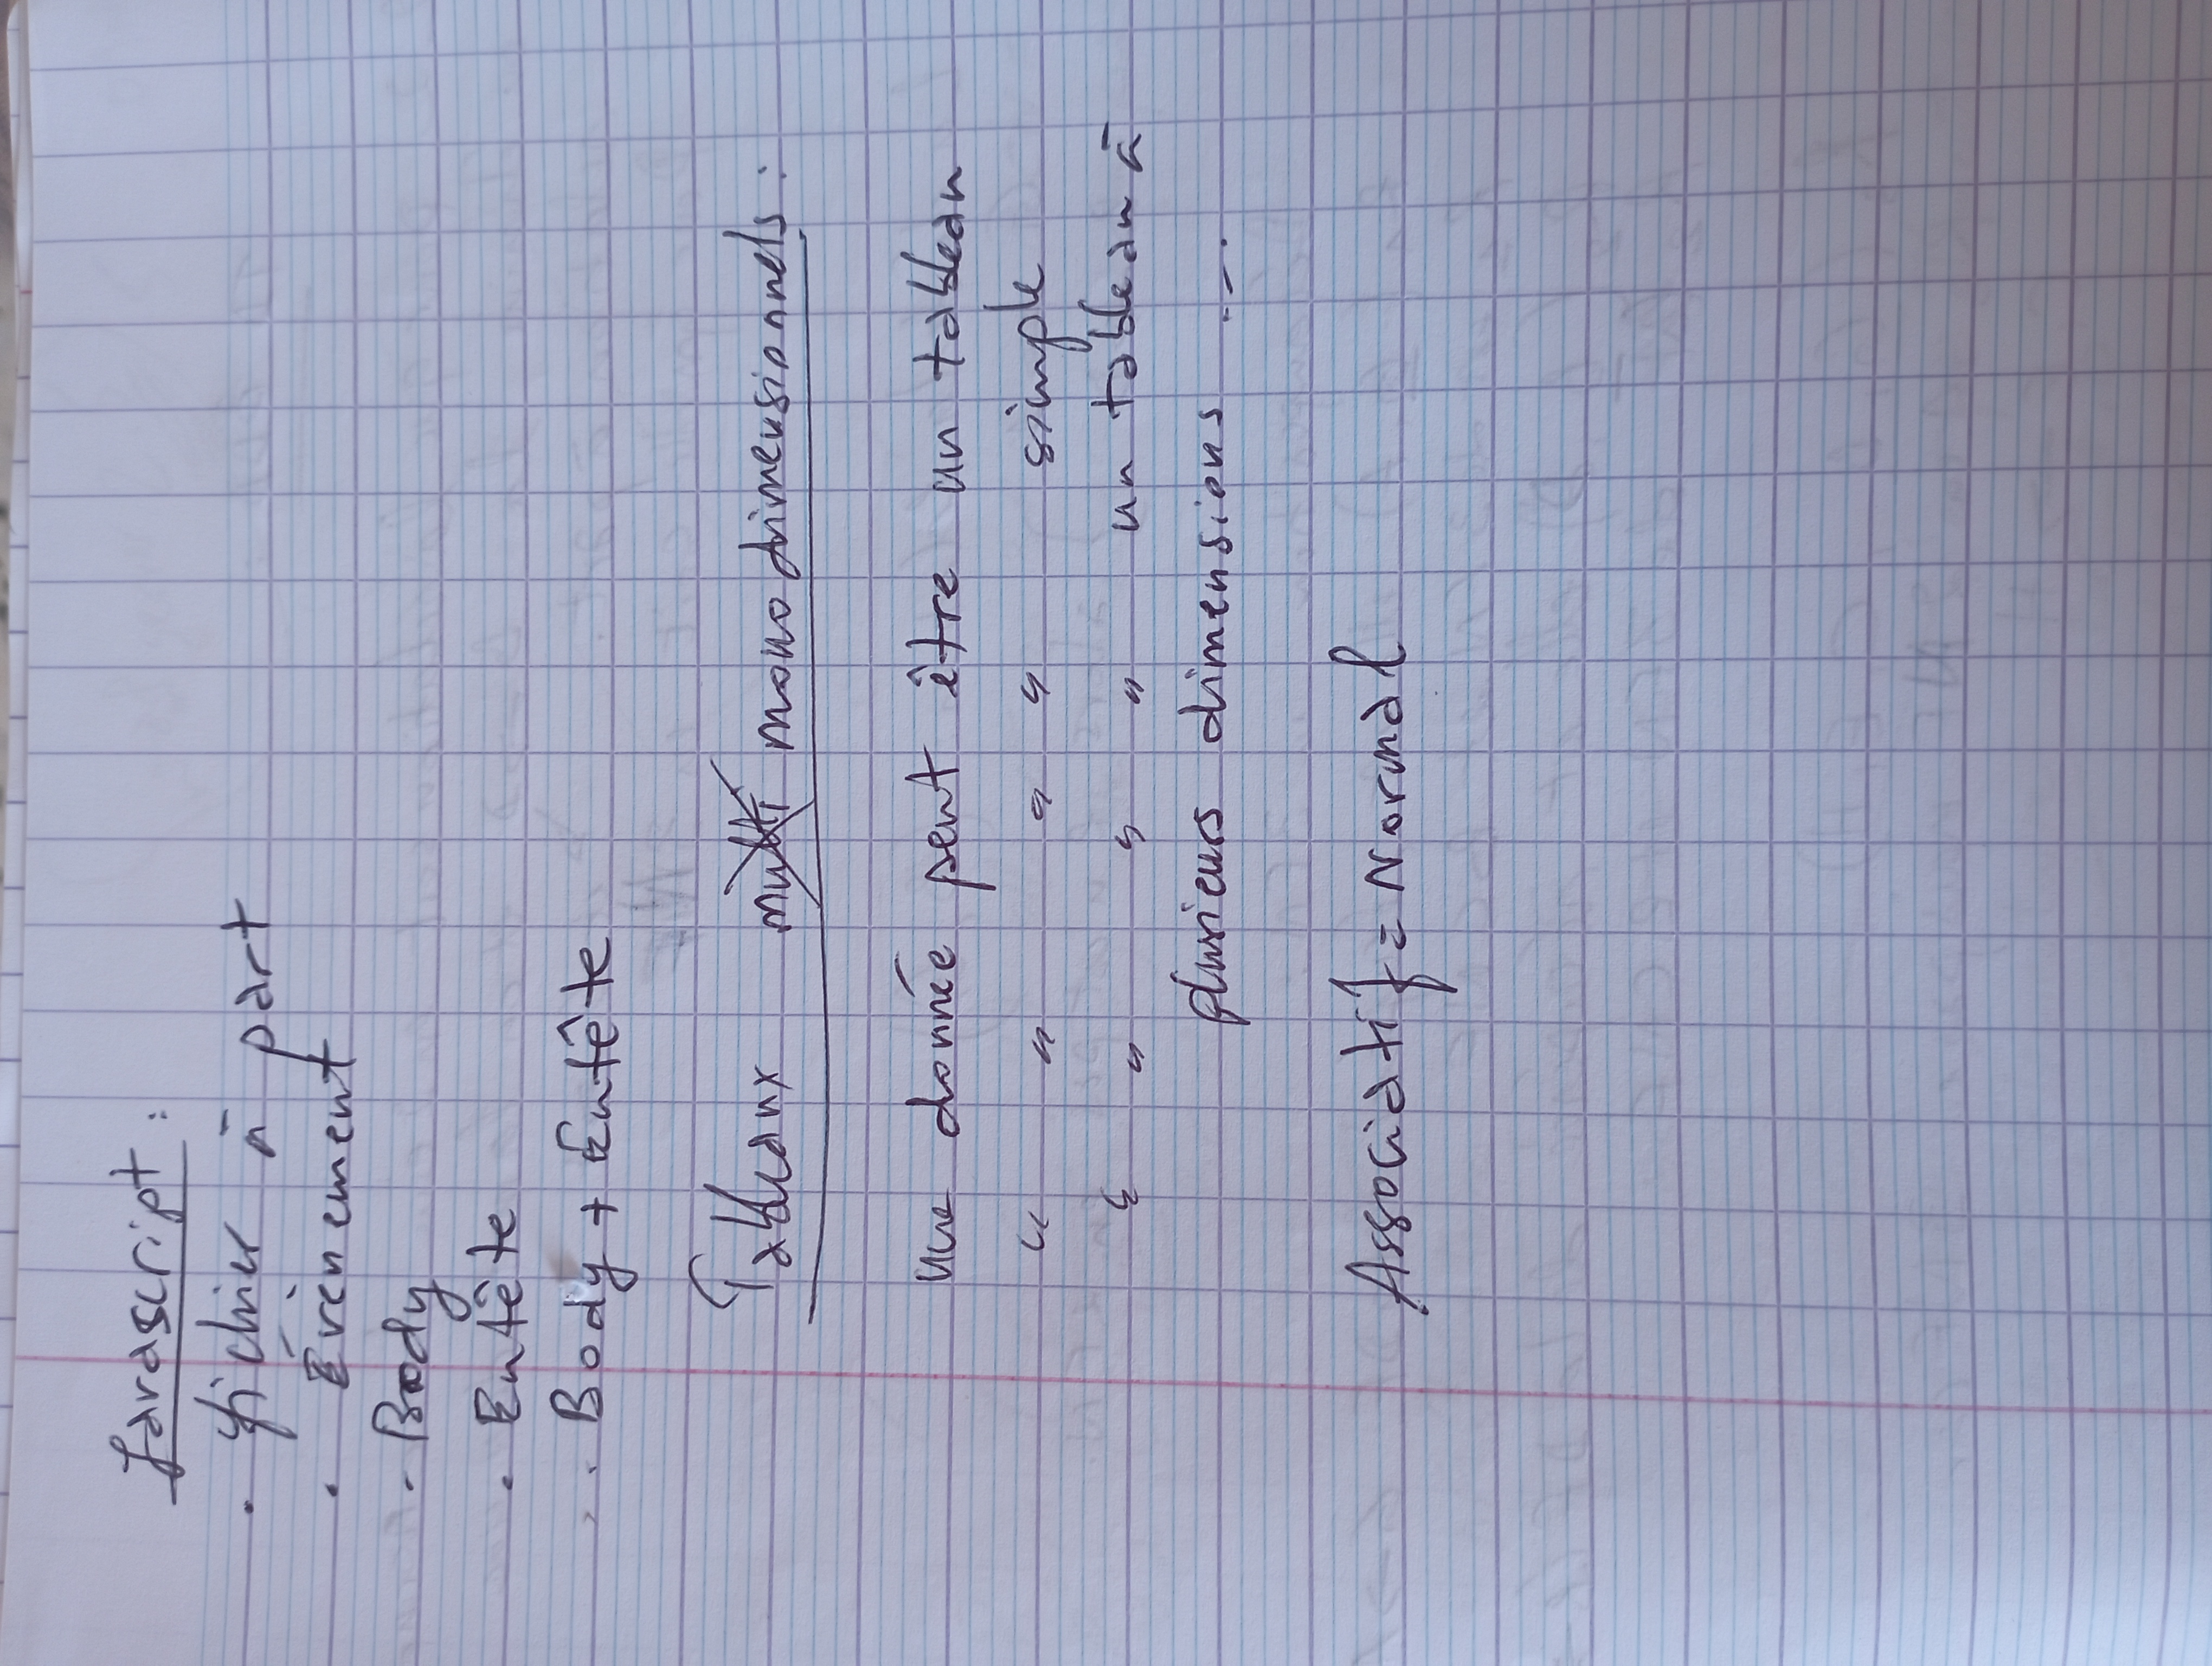 Javascript :
. fichier à part
. Évènement
. Body
. Entête
. . Body + Entête
Tableaux multi monodimensionnels :
une donnée peut être un tableau
" " " " simple
" " " " un tableau à
plusieurs dimensions ...
Associatif = Normal